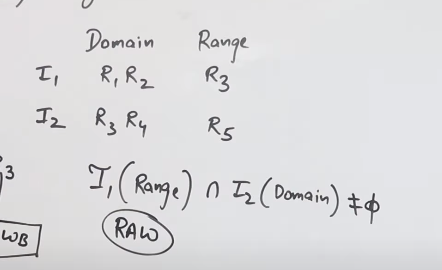 Domain Range
I₁ R₁ R₂ R₃
I₂ R₃ R₄ R₅
3
I₁(Range) ∩ I₂(Domain) ≠ φ
RAW
WB